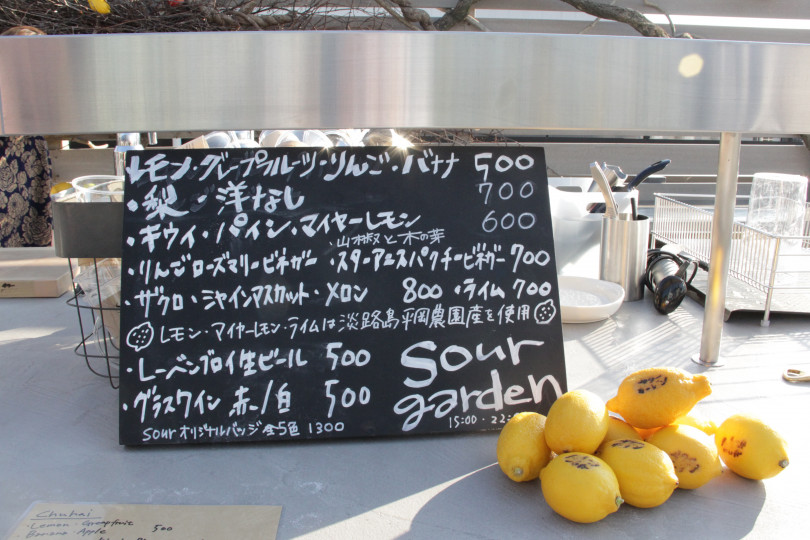 レモン・グレープフルーツ・りんご・バナナ 500
・梨・洋なし 700
・キウイ・パイン・マイヤーレモン 600
山椒と木の芽
・りんごローズマリービネガー ・スターアニスパクチービネガー 700
・ザクロ・シャインマスカット・メロン 800 ・ライム 700
レモン・マイヤーレモン・ライムは淡路島平岡農園産を使用
・レーベンブロイ生ビール 500
・グラスワイン 赤/白 500
sour garden
15:00 - 22:
sour オリジナルバッジ全5色 1300
Chuhai
・Lemon ・Grapefruit 500
・Banana ・Apple